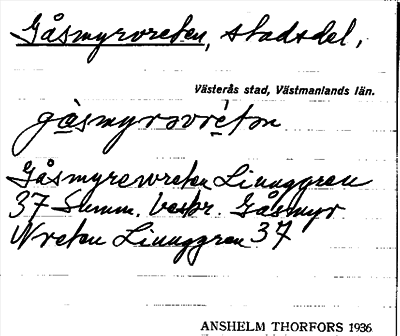 Gåsmyrvreten, stadsdel,
Västerås stad, Västmanlands län.
gåsmyrsvretən
Gåsmyrevreten Linnggren
37 Summ. beskr. Gåsmyr
Wreten Linnggren 37
ANSHELM THORFORS 1936